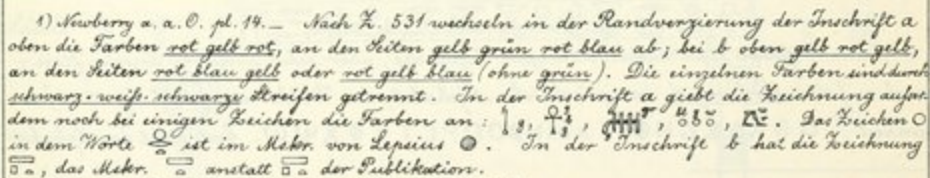 1) Newberry a. a. O. pl. 14. — Nach Z. 531 wechseln in der Randverzierung der Inschrift a
oben die Farben rot gelb rot, an den Seiten gelb grün rot blau ab; bei b oben gelb rot gelb,
an den Seiten rot blau gelb oder rot gelb blau (ohne grün). Die einzelnen Farben sind durch
schwarz-weiß-schwarze Streifen getrennt. In der Inschrift a giebt die Zeichnung außer-
dem noch bei einigen Zeichen die Farben an: , , , , . Das Zeichen
in dem Worte ist im Mskr. von Lepsius . In der Inschrift b hat die Zeichnung
, das Mskr. anstatt der Publikation.